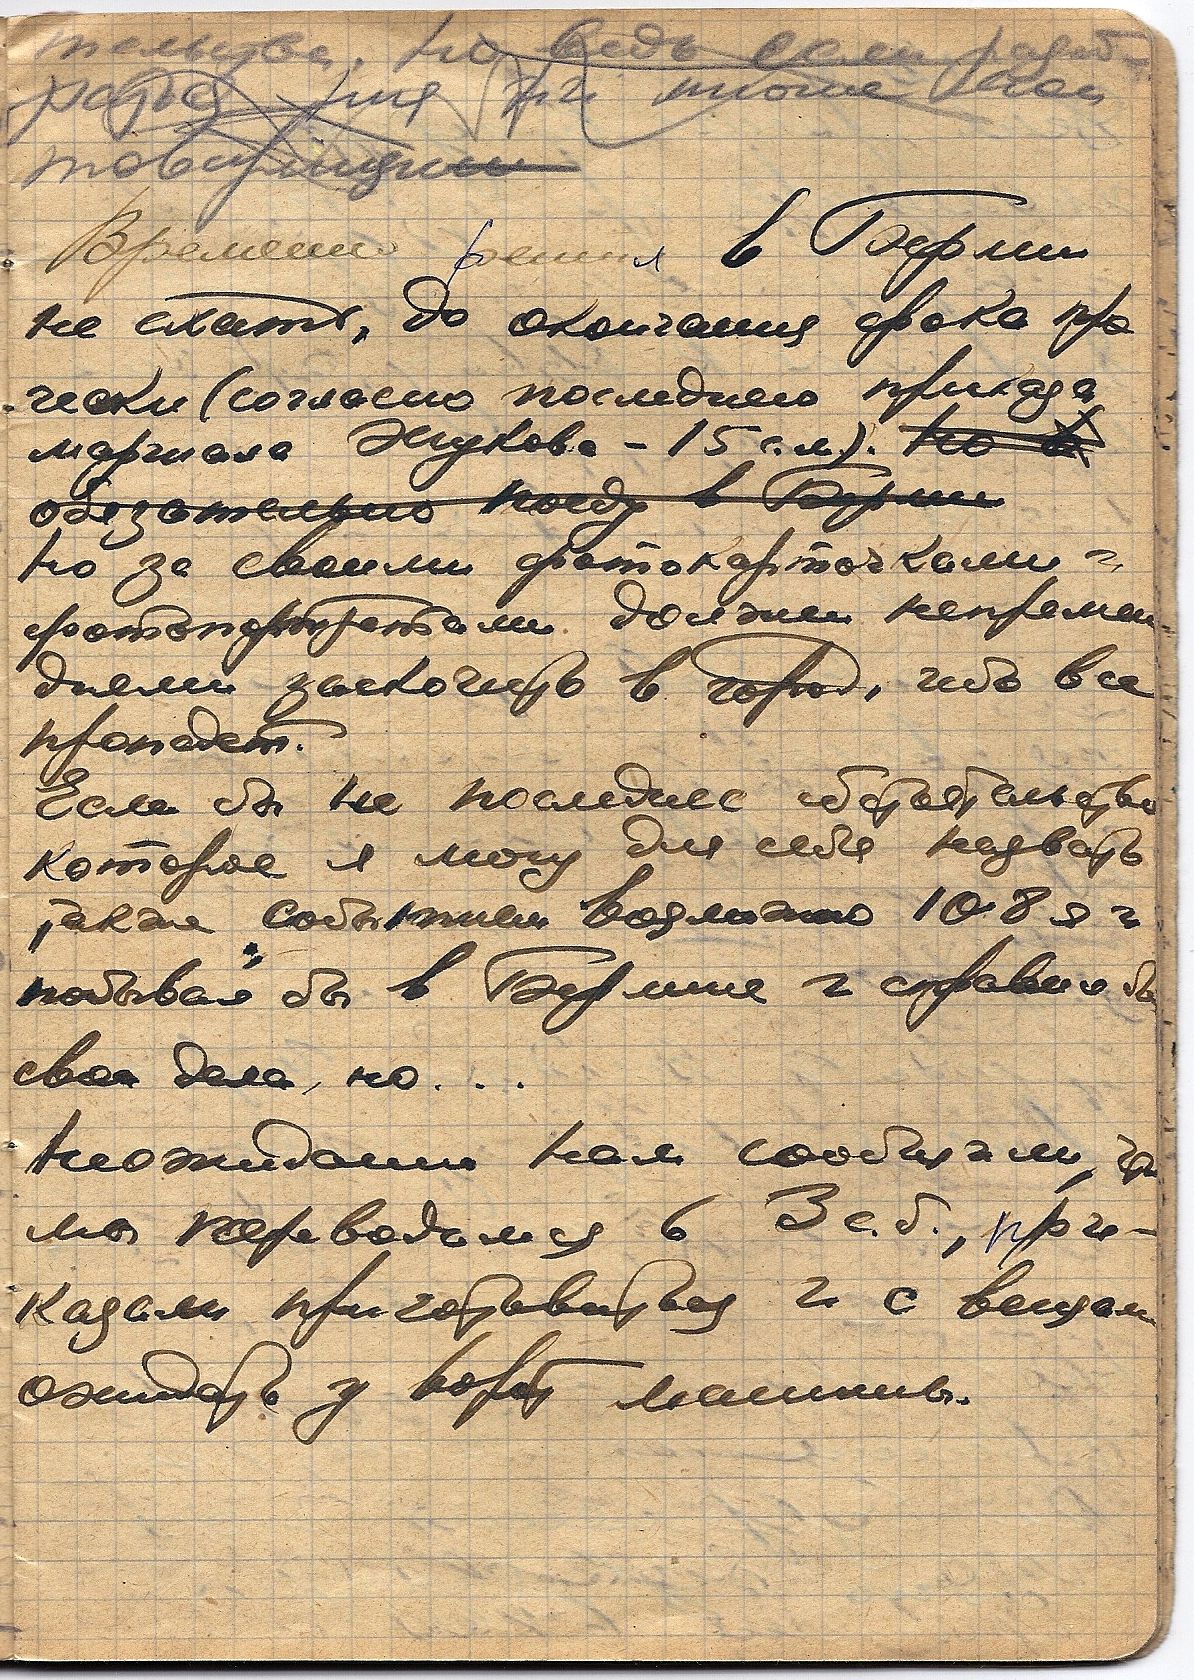 тельства. Но ведь сами разоб-
товарищи
Временно решил в Берлин
не ехать, до окончания срока про
чески (согласно последнего приказа
маршала Жукова - 15 с.м.). Но я
обязательно поеду в Берлин
Но за своими фотокарточками и
фотопортретами должен непремен
заскочить в город, ибо все
пропадет.
Если бы не последнее обстоятельство
которое я могу для себя назвать
также событием возможно 10.8 я и
побывал бы в Берлине и справил бы
свои дела, но...
Неожиданно нам сообщили, что
мы переводимся в 3 с.б., при-
казали приготовиться и с вещами
ожидать у ворот машины.